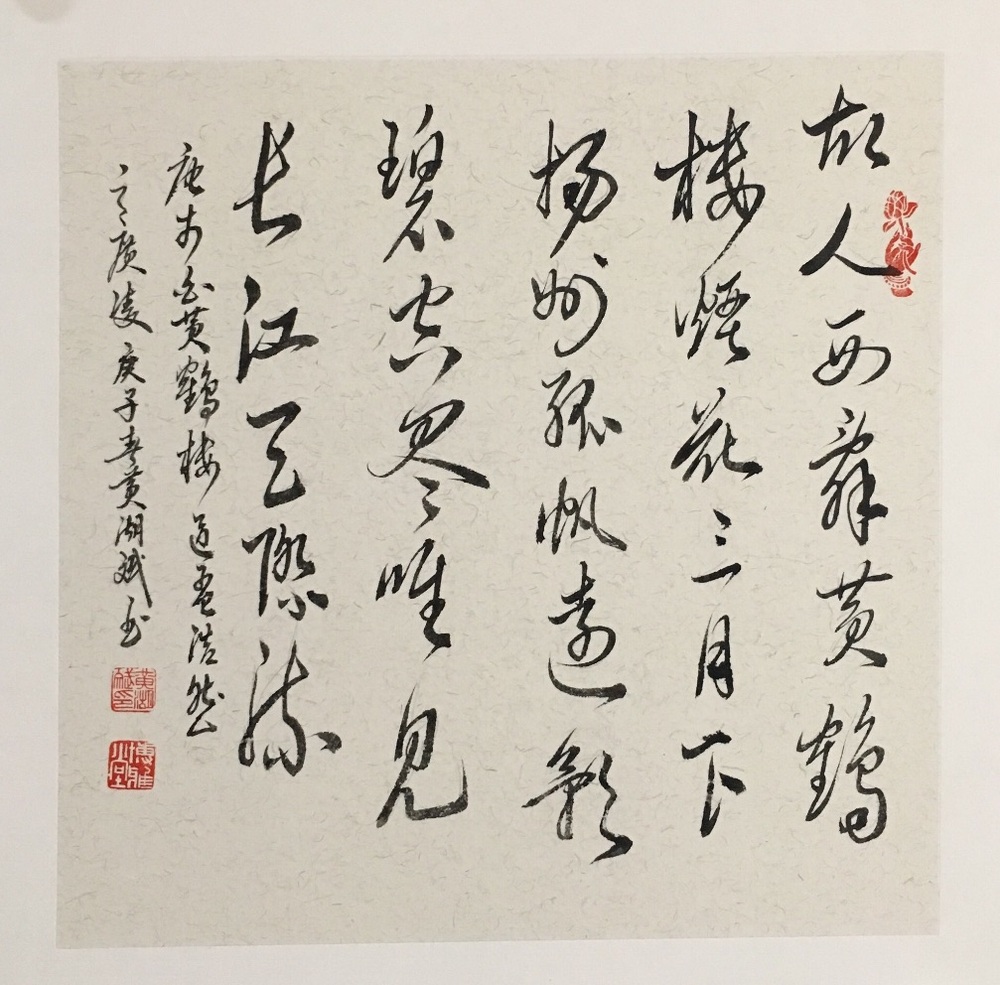 故人西辞黄鹤
楼煙花三月下
扬州孤帆远影
碧空尽唯见
长江天际流
唐李白黄鹤楼送孟浩然
之广陵庚子春黄湖斌书
黄湖斌印
博雅堂